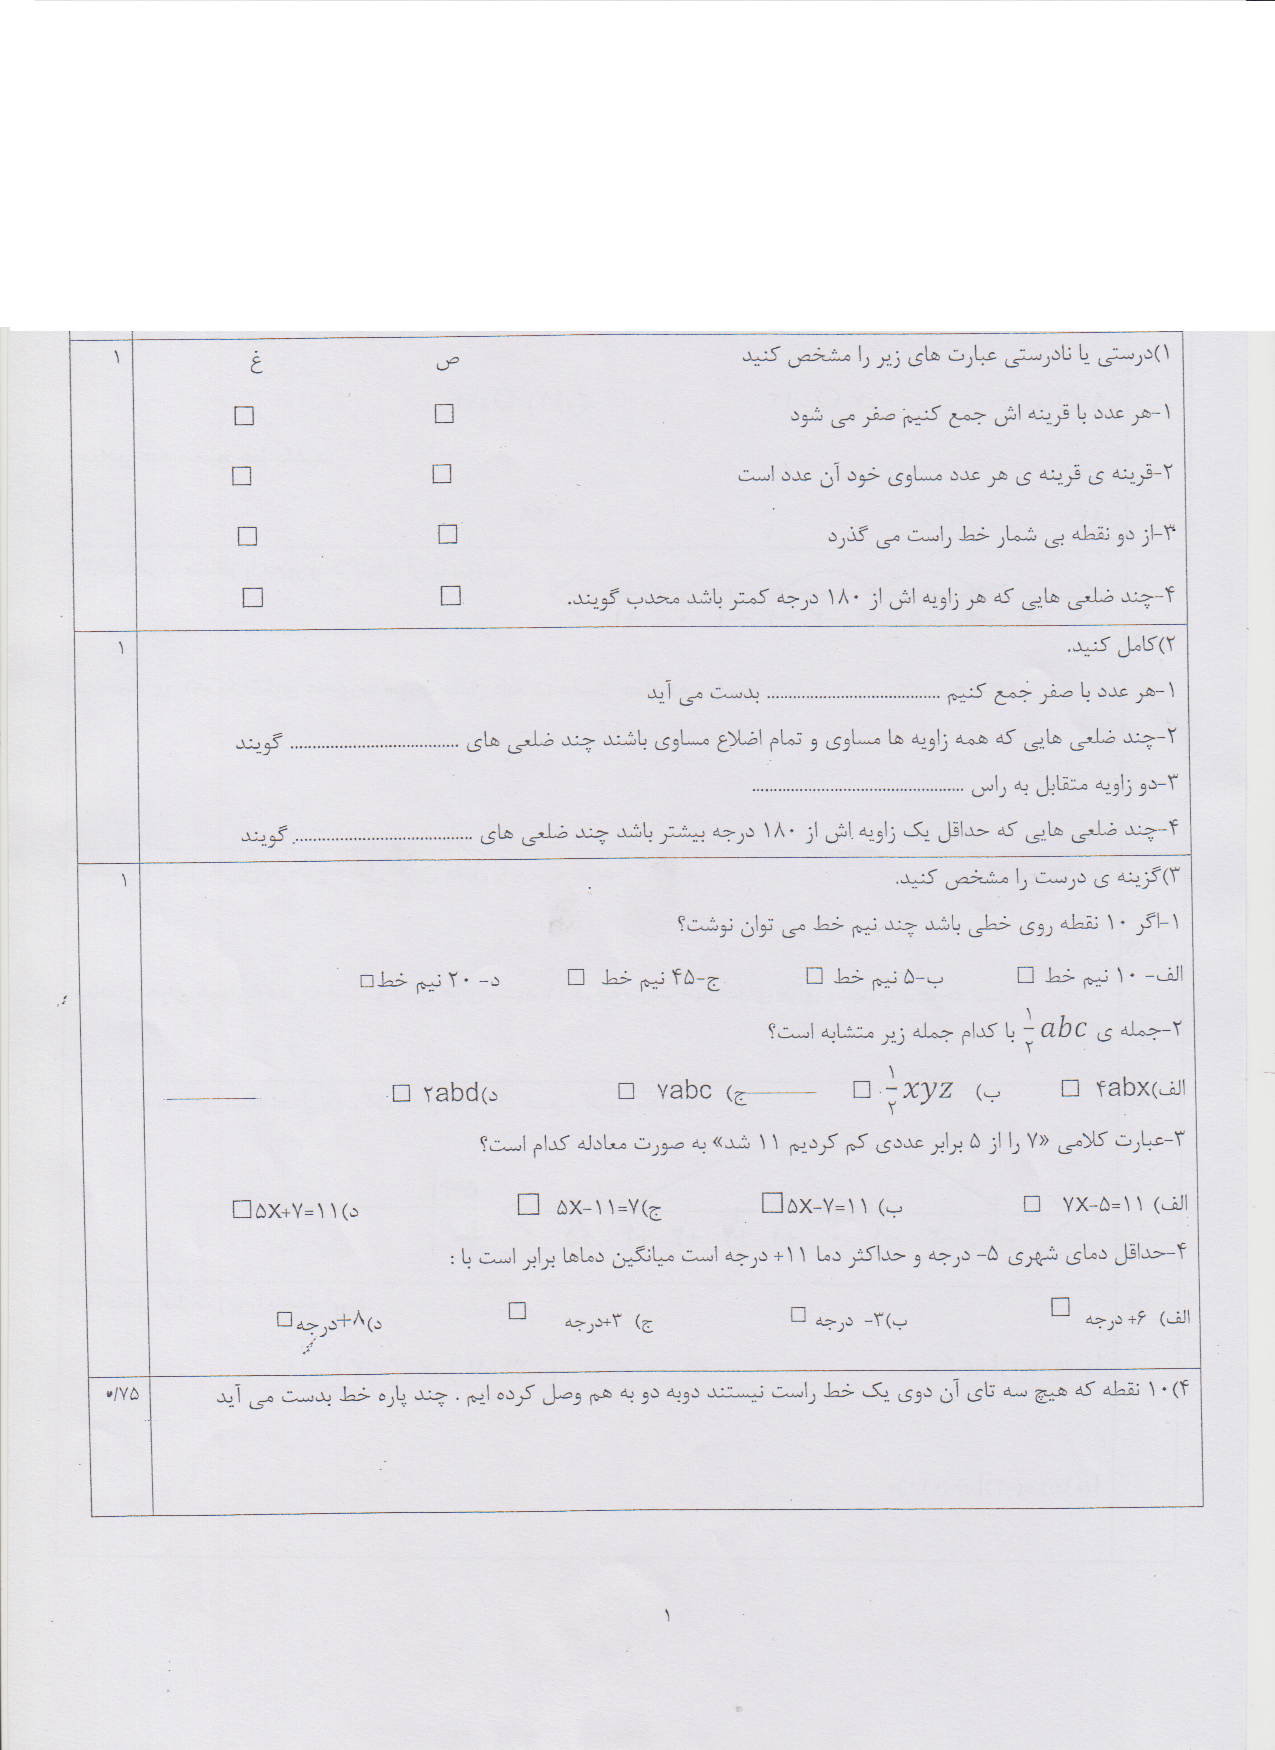 ۱)درستی یا نادرستی عبارت های زیر را مشخص کنید ص غ ۱
۱-هر عدد با قرینه اش جمع کنیم صفر می شود □ □
۲-قرینه ی قرینه ی هر عدد مساوی خود آن عدد است □ □
۳-از دو نقطه بی شمار خط راست می گذرد □ □
۴-چند ضلعی هایی که هر زاویه اش از ۱۸۰ درجه کمتر باشد محدب گویند. □ □
۲)کامل کنید. ۱
۱-هر عدد با صفر جمع کنیم ...................................... بدست می آید
۲-چند ضلعی هایی که همه زاویه ها مساوی و تمام اضلاع مساوی باشند چند ضلعی های ..................................... گویند
۳-دو زاویه متقابل به راس ................................................
۴-چند ضلعی هایی که حداقل یک زاویه اش از ۱۸۰ درجه بیشتر باشد چند ضلعی های ........................................ گویند
۳)گزینه ی درست را مشخص کنید. ۱
۱-اگر ۱۰ نقطه روی خطی باشد چند نیم خط می توان نوشت؟
الف- ۱۰ نیم خط □ ب-۵ نیم خط □ ج-۴۵ نیم خط □ د- ۲۰ نیم خط□
۲-جمله ی ۱/۲ abc با کدام جمله زیر متشابه است؟
الف)۴abx □ ب) ۱/۲ xyz □ ج) ۷abc □ د)۲abd □
۳-عبارت کلامی «۷ را از ۵ برابر عددی کم کردیم ۱۱ شد» به صورت معادله کدام است؟
الف) ۷X-۵=۱۱ □ ب) ۵X-۷=۱۱□ ج)۵X-۱۱=۷ □ د)۵X+۷=۱۱□
۴-حداقل دمای شهری ۵- درجه و حداکثر دما ۱۱+ درجه است میانگین دماها برابر است با :
الف) ۶+ درجه □ ب)۳- درجه □ ج) ۳+درجه □ د)۸+درجه□
۴)۱۰ نقطه که هیچ سه تای آن دوی یک خط راست نیستند دوبه دو به هم وصل کرده ایم . چند پاره خط بدست می آید ۰/۷۵
۱